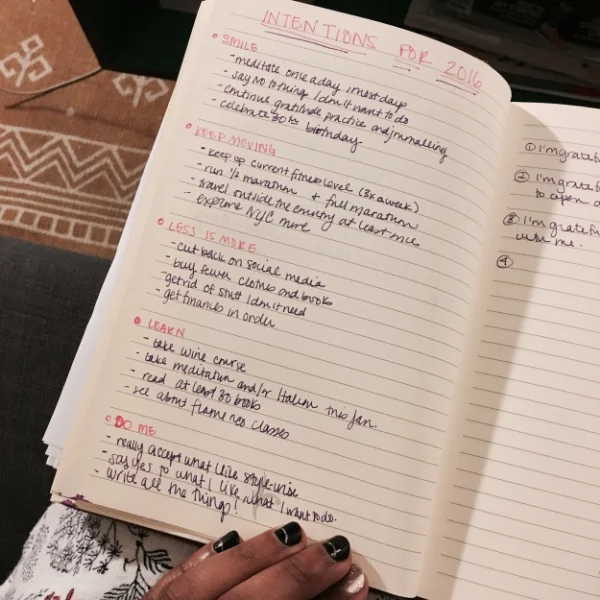 INTENTIONS FOR 2016
• SMILE
- meditate once a day, most days
- say NO to things I don't want to do
- continue gratitude practice and journaling
- celebrate 30th birthday.
• KEEP MOVING
- keep up current fitness level (3x a week)
- run 1/2 marathon + full marathon
- travel outside the country at least once
- explore NYC more
• LESS IS MORE
- cut back on social media
- buy fewer clothes and books
- get rid of stuff I don't need
- get finances in order
• LEARN
- take wine course
- take meditation and/or Italian this Jan.
- read at least 30 books
- see about flamenco classes
• DO ME
- really accept what I like style-wise
- say yes to what I like, what I want to do.
- write all the things!
① I'm grateful
② I'm grateful
to open a
③ I'm grateful
with me.
④